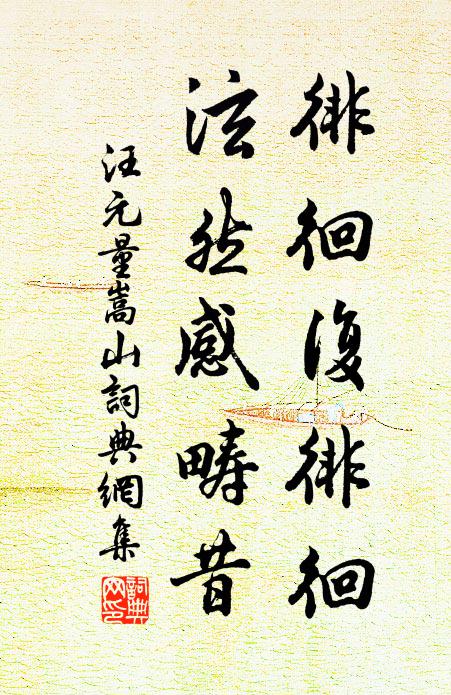 徘徊復徘徊
泫然感疇昔
汪元量嵩山詞典網集
詞典網印